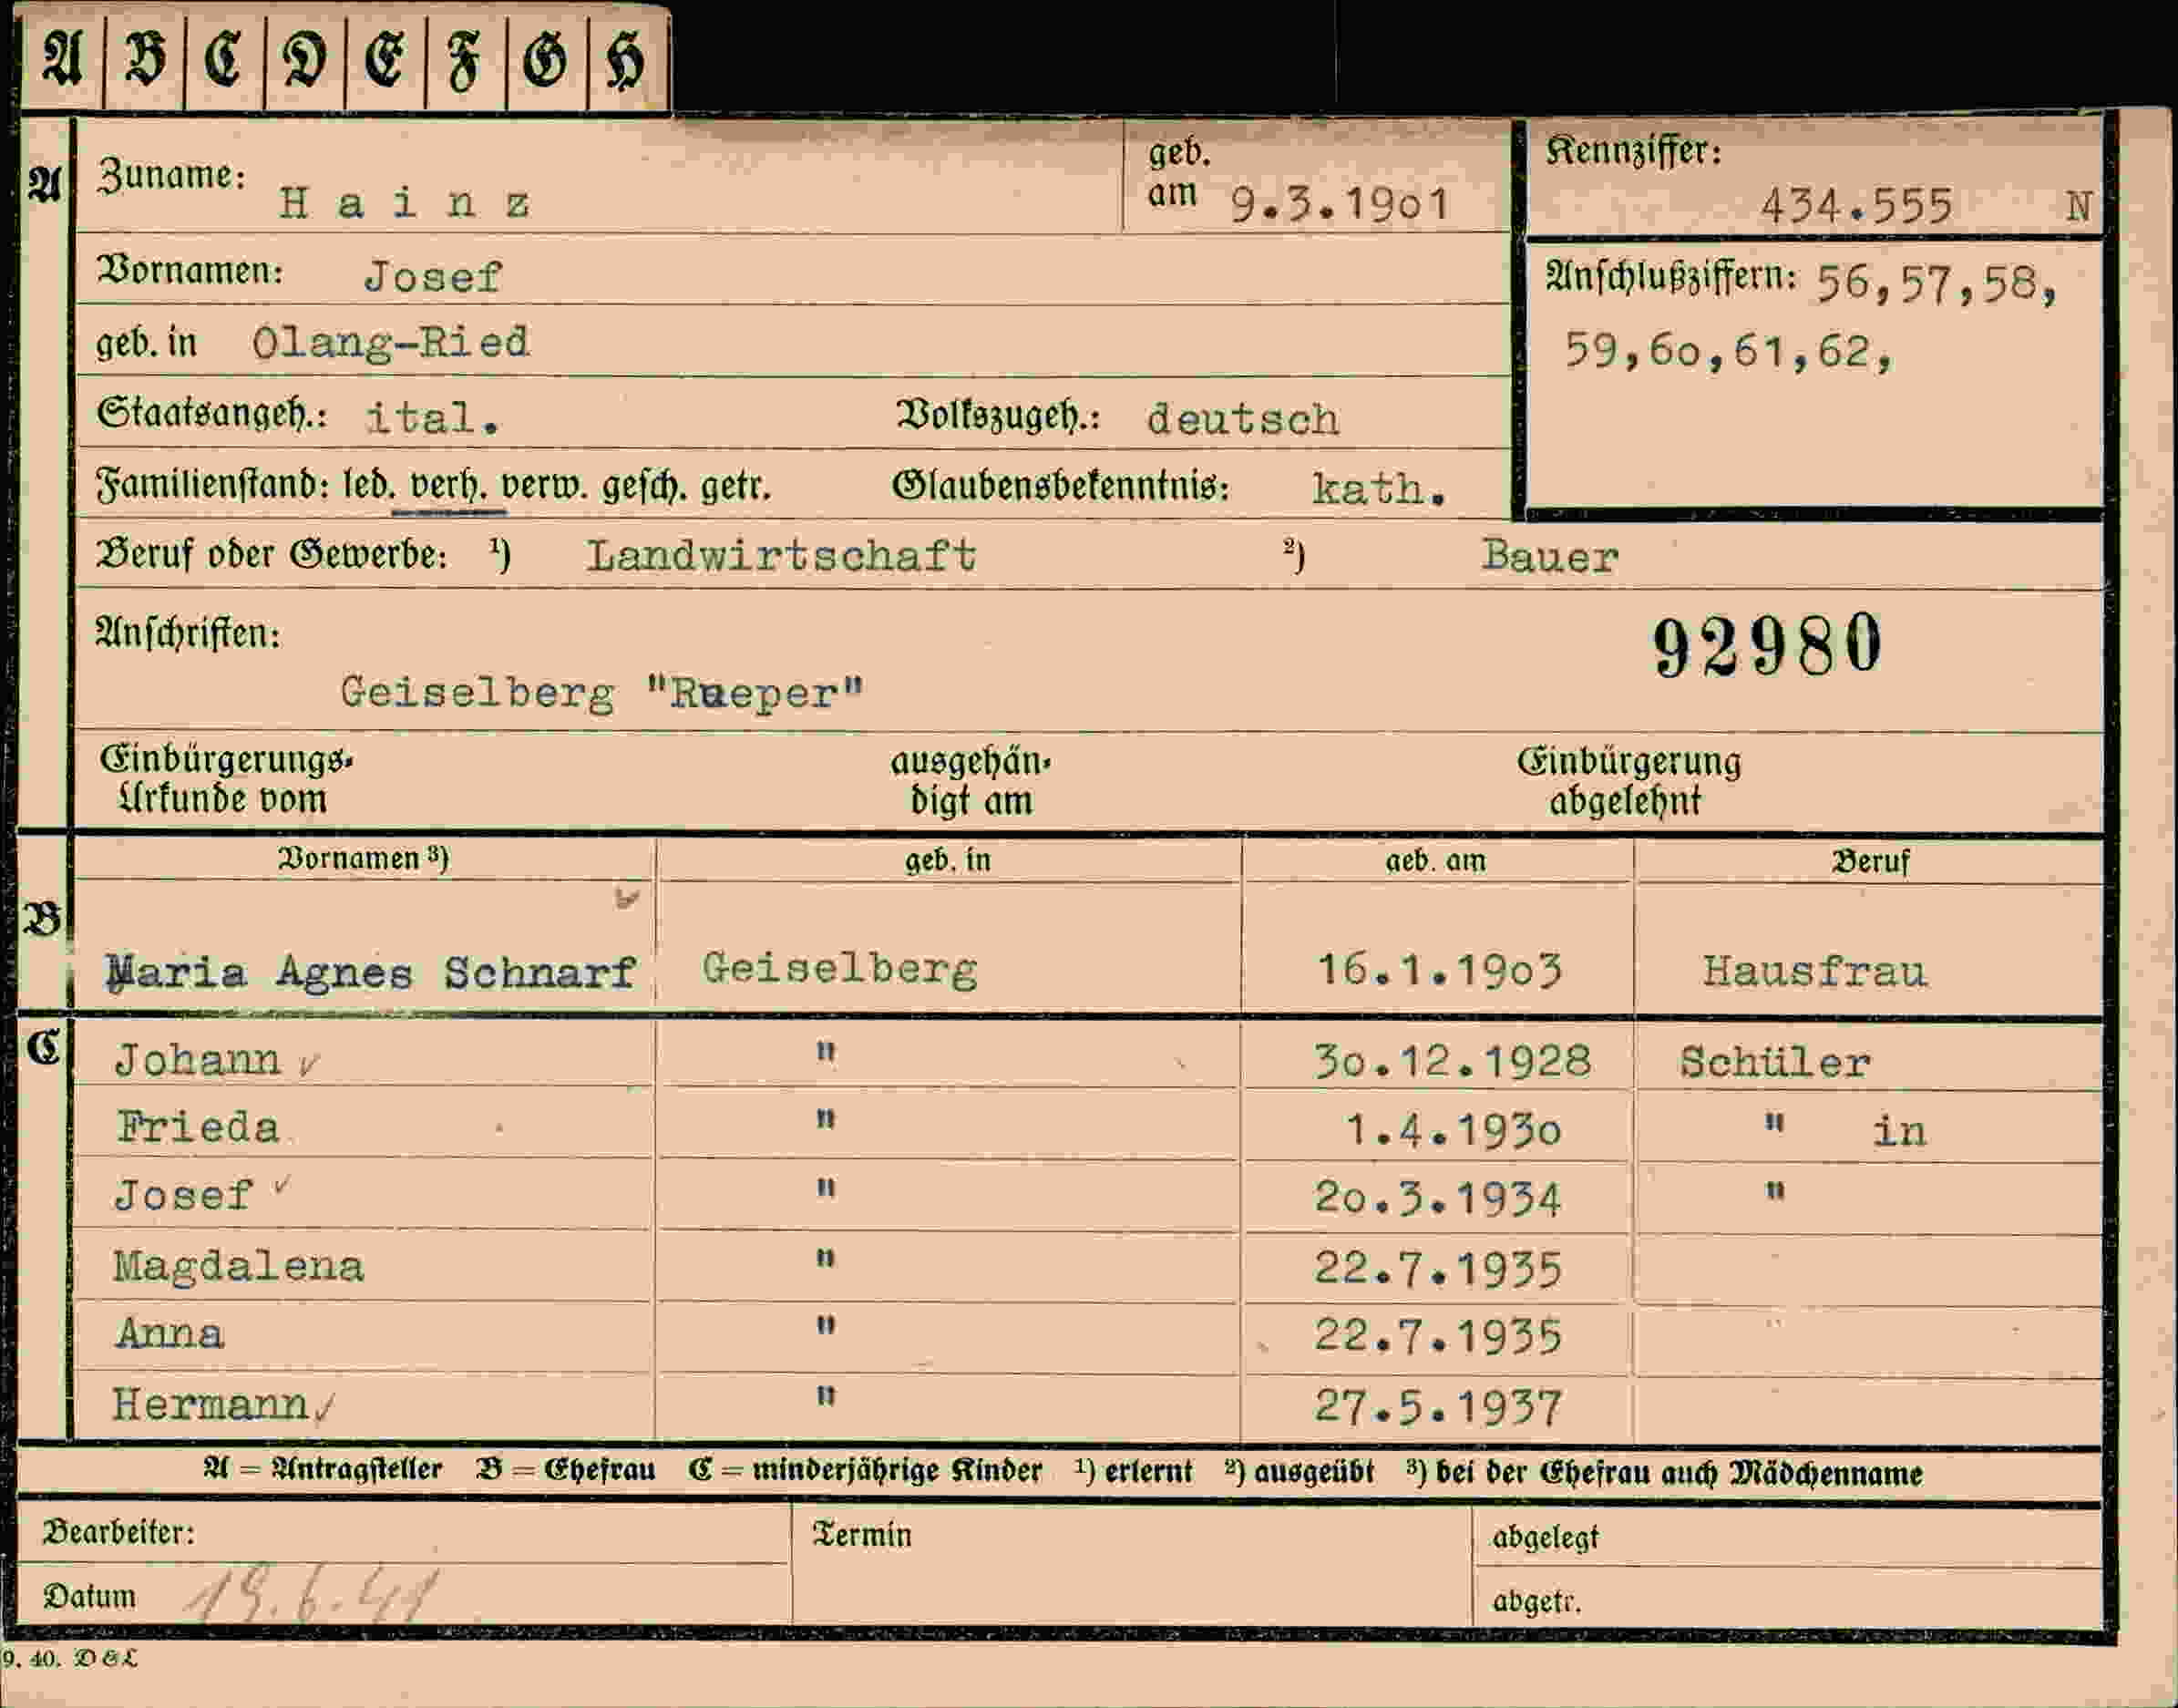 A B C D E F G H
A Zuname: Hainz geb. am 9.3.1901 Kennziffer: 434.555 N
Vornamen: Josef Anschlußziffern: 56,57,58,
geb. in Olang-Ried 59,60,61,62,
Staatsangeh.: ital. Volkszugeh.: deutsch
Familienstand: led. verh. verw. gesch. getr. Glaubensbekenntnis: kath.
Beruf oder Gewerbe: ¹) Landwirtschaft ²) Bauer
Anschriften: 92980
Geiselberg "Rueper"
Einbürgerungs- ausgehän- Einbürgerung
Urkunde vom digt am abgelehnt
Vornamen ³) geb. in geb. am Beruf
B
Maria Agnes Schnarf Geiselberg 16.1.1903 Hausfrau
C Johann ✓ " 30.12.1928 Schüler
Frieda " 1.4.1930 " in
Josef ✓ " 20.3.1934 "
Magdalena " 22.7.1935
Anna " 22.7.1935
Hermann ✓ " 27.5.1937
A = Antragsteller B = Ehefrau C = minderjährige Kinder ¹) erlernt ²) ausgeübt ³) bei der Ehefrau auch Mädchenname
Bearbeiter: Termin abgelegt
Datum 19.6.41 abgetr.
9. 40. D&L